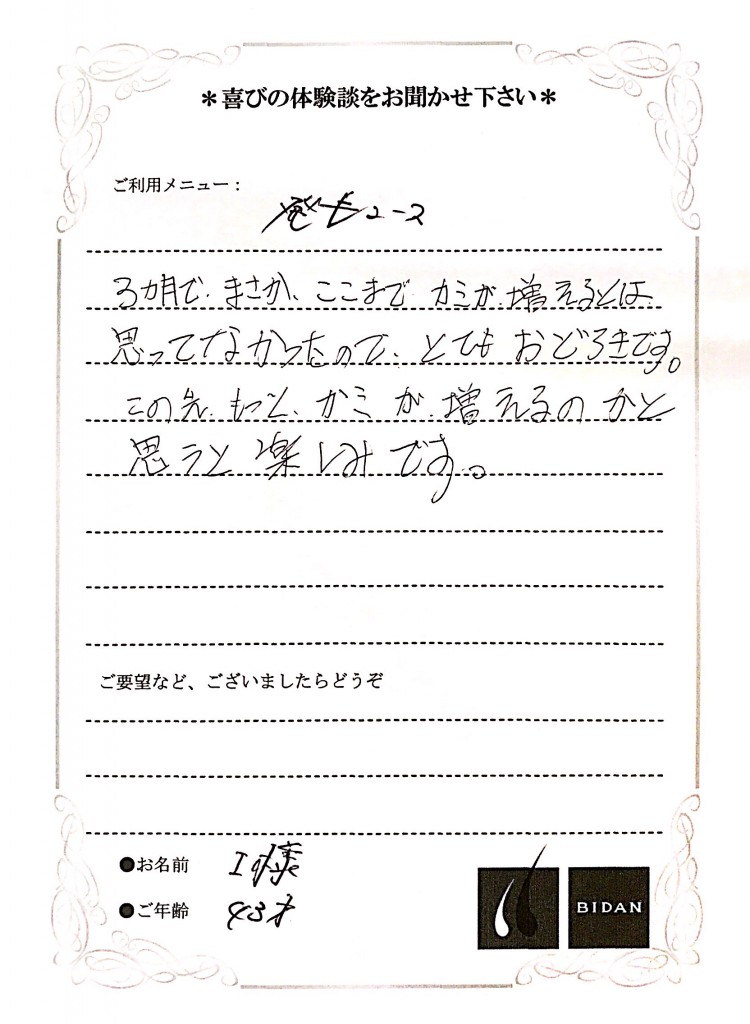 ＊喜びの体験談をお聞かせ下さい＊
ご利用メニュー：
発毛コース
3カ月で、まさか、ここまで カミが、増えるとは、
思ってなかったので、とても おどろきです。
この先、もっと、カミ が、増えるのかと
思うと 楽しみです。
ご要望など、ございましたらどうぞ
●お名前
●ご年齢 43才
BIDAN